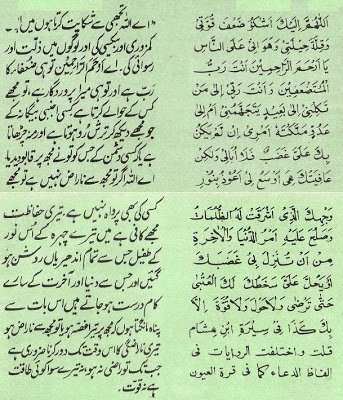 اَللّٰهُمَّ اِلَيْكَ اَشْكُوْ ضُعْفَ قُوَّتِيْ
وَقِلَّةَ حِيْلَتِيْ وَهَوَانِيْ عَلَى النَّاسِ
يَا اَرْحَمَ الرَّاحِمِيْنَ اَنْتَ رَبُّ
الْمُسْتَضْعَفِيْنَ وَاَنْتَ رَبِّيْ اِلٰى مَنْ
تَكِلُنِيْ اِلٰى بَعِيْدٍ يَتَجَهَّمُنِيْ اَمْ اِلٰى
عَدُوٍّ مَلَّكْتَهُ اَمْرِيْ اِنْ لَمْ يَكُنْ
بِكَ عَلَيَّ غَضَبٌ فَلَا اُبَالِيْ وَلٰكِنْ
عَافِيَتُكَ هِيَ اَوْسَعُ لِيْ اَعُوْذُ بِنُوْرِ
وَجْهِكَ الَّذِيْ اَشْرَقَتْ لَهُ الظُّلُمَاتُ
وَصَلَحَ عَلَيْهِ اَمْرُ الدُّنْيَا وَالْاٰخِرَةِ
مِنْ اَنْ تُنْزِلَ بِيْ غَضَبَكَ
اَوْ يَحِلَّ عَلَيَّ سَخَطُكَ لَكَ الْعُتْبٰى
حَتّٰى تَرْضٰى وَلَاحَوْلَ وَلَاقُوَّةَ اِلَّا
بِكَ كذا فى سيرة ابن هشام
قلت واختلفت الروايات فى
الفاظ الدعاء كما فى قرة العيون
"اے اللہ تجھی سے شکایت کرتا ہوں میں
کمزوری اور بیکسی کی اور لوگوں میں ذلت اور
رسوائی کی۔ اے ارحم الراحمین تو ہی ضعفار کا
رب ہے اور تو ہی میرا پروردگار ہے، تو مجھے
کس کے حوالے کرتا ہے کسی اجنبی بیگانہ کے
جو مجھے دیکھ کر ترش رو ہوتا ہے اور منہ چڑھاتا
ہے یا کسی دشمن کے جس کو تونے مجھ پر قابو دیدیا
اے اللہ اگر تو مجھ سے ناراض نہیں ہے تو مجھے
کسی کی بھی پرواہ نہیں ہے۔ تیری حفاظت
مجھے کافی ہے میں تیرے چہرہ کے اس نور
کے طفیل جس سے تمام اندھیریاں روشن ہو
گئیں اور جس سے دنیا اور آخرت کے سارے
کام درست ہوجاتے ہیں اس بات سے
پناہ مانگتا ہوں کہ مجھ پر تیرا غصہ ہو یا تو مجھ سے ناراض ہو
تیری ناراضگی کا اس وقت تک دور کرنا ضروری ہے
جب تک تو راضی نہ ہو، نہ تیرے سوا کوئی طاقت
ہے نہ قوت۔